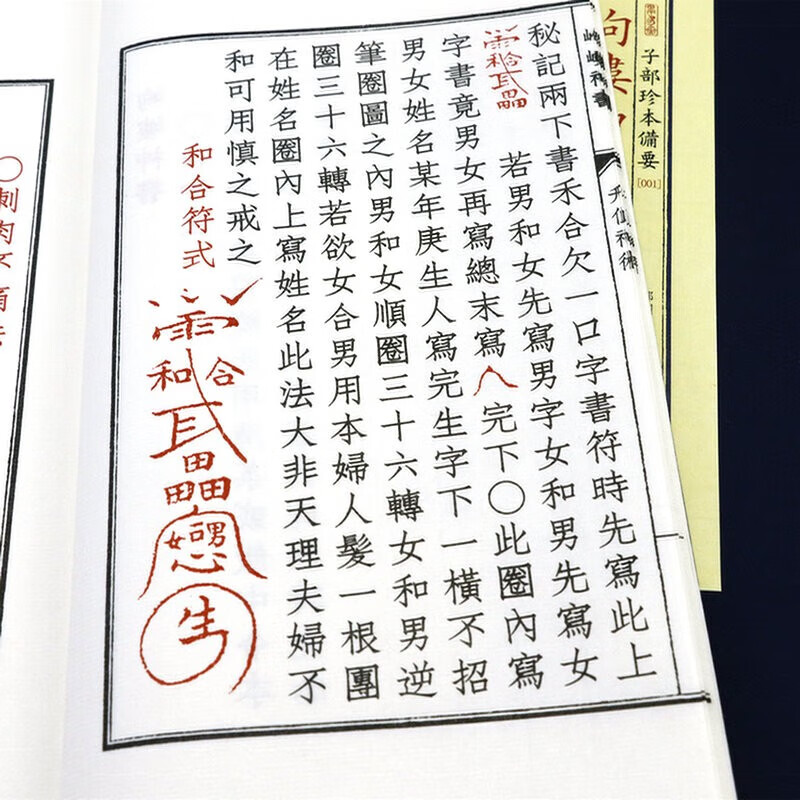 子部珍本備要
[001]
秘記兩下書禾合欠一口字書符時先寫此上
若男和女先寫男字女和男先寫女
字書竟男女再寫總末寫
完下〇此圈內寫
男女姓名某年庚生人寫完生字下一橫不招
筆圈圖之內男和女順圈三十六轉女和男逆
圈三十六轉若欲女合男用本婦人髮一根團
在姓名圈內上寫姓名此法大非天理夫婦不
和可用慎之戒之
和合符式
和合
生